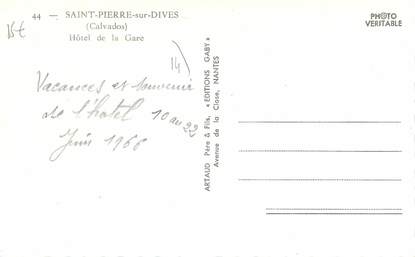 44 — SAINT-PIERRE-sur-DIVES
(Calvados)
Hôtel de la Gare
14
Vacances et souvenir
de l'hotel 10 au 22
Juin 1966
ARTAUD Père & Fils, « EDITIONS GABY »
Avenue de la Close, NANTES
PHOTO
VERITABLE